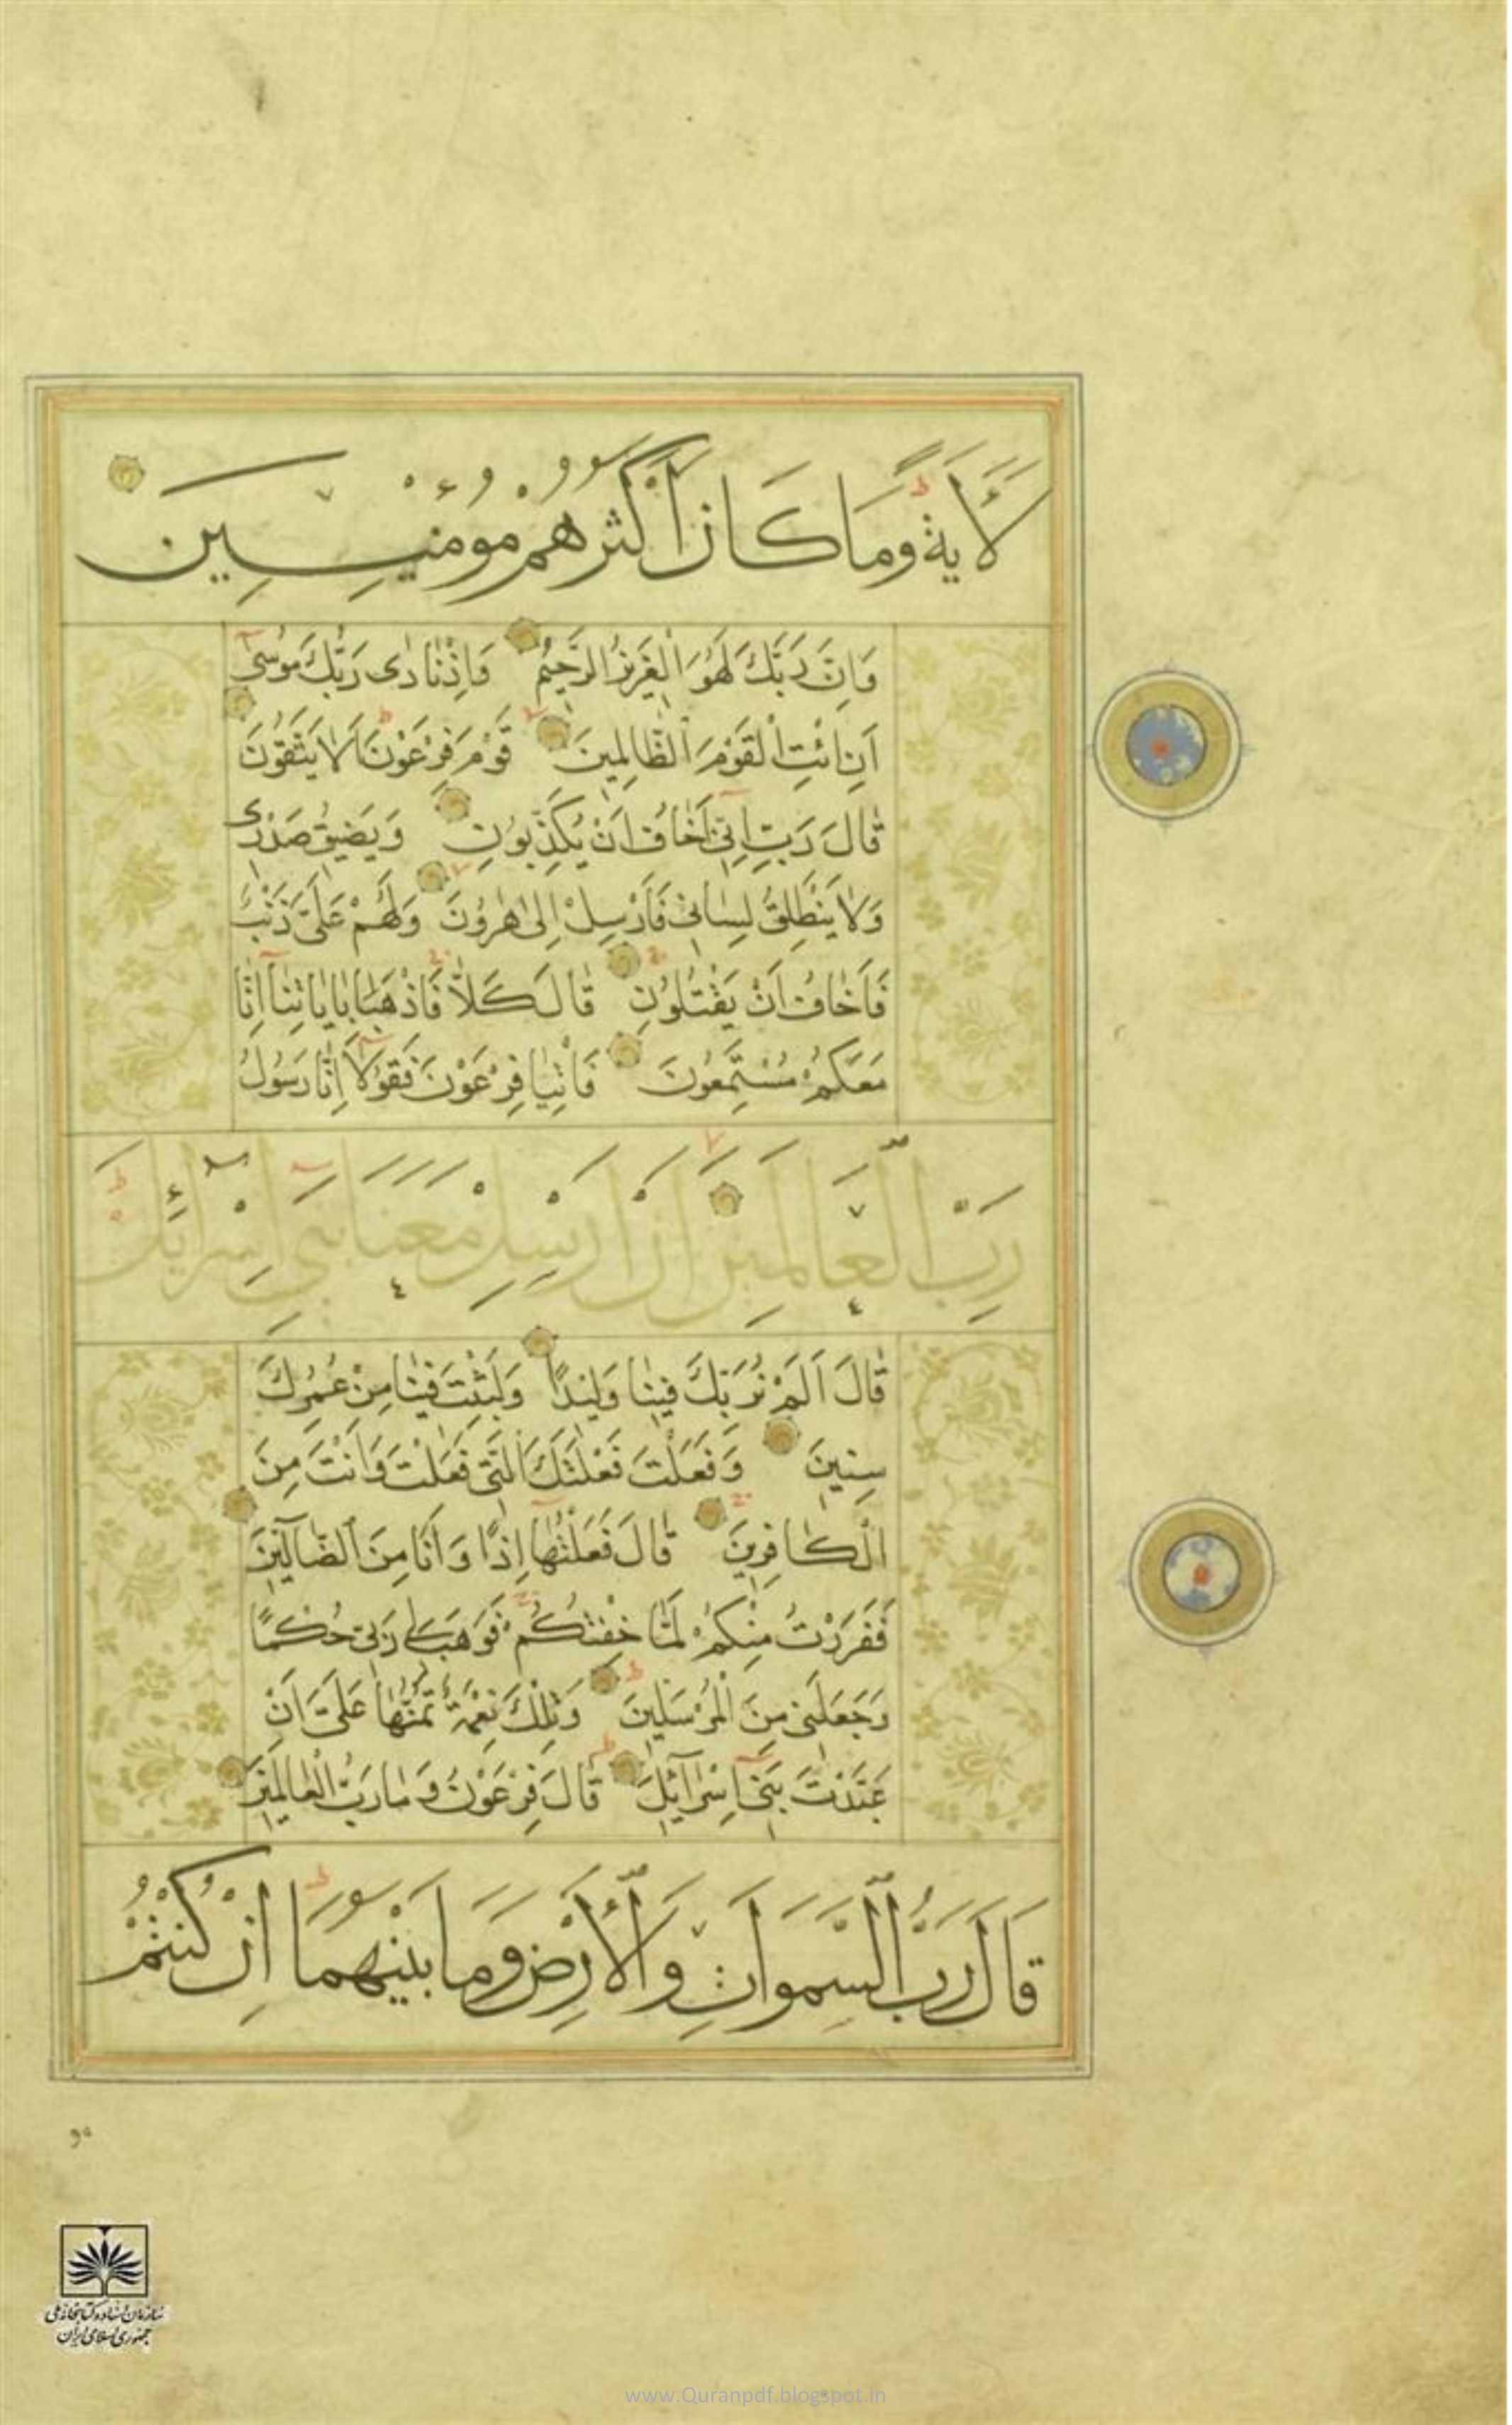 لَأَيَةً وَمَا كَانَ أَكْثَرُهُمْ مُؤْمِنِينَ
وَاِنَّ رَبَّكَ لَهُوَ الْعَزِيزُ الرَّحِيمُ وَاِذْ نَادٰى رَبُّكَ مُوسٰى
اَنِ ائْتِ الْقَوْمَ الظَّالِمِينَ قَوْمَ فِرْعَوْنَ اَلَا يَتَّقُونَ
قَالَ رَبِّ اِنِّي اَخَافُ اَنْ يُكَذِّبُونِ وَيَضِيقُ صَدْرِى
وَلَا يَنْطَلِقُ لِسَانِى فَاَرْسِلْ اِلٰى هٰرُونَ وَلَهُمْ عَلَىَّ ذَنْبٌ
فَاَخَافُ اَنْ يَقْتُلُونِ قَالَ كَلَّا فَاذْهَبَا بِاٰيَاتِنَا اِنَّا
مَعَكُمْ مُسْتَمِعُونَ فَأْتِيَا فِرْعَوْنَ فَقُولَا اِنَّا رَسُولُ
رَبِّ الْعَالَمِينَ اَنْ اَرْسِلْ مَعَنَا بَنِى اِسْرَائِلَ
قَالَ اَلَمْ نُرَبِّكَ فِينَا وَلِيدًا وَلَبِثْتَ فِينَا مِنْ عُمُرِكَ
سِنِينَ وَفَعَلْتَ فَعْلَتَكَ الَّتِى فَعَلْتَ وَاَنْتَ مِنَ
الْكَافِرِينَ قَالَ فَعَلْتُهَا اِذًا وَاَنَا مِنَ الضَّالِّينَ
فَفَرَرْتُ مِنْكُمْ لَمَّا خِفْتُكُمْ فَوَهَبَ لِى رَبِّى حُكْمًا
وَجَعَلَنِى مِنَ الْمُرْسَلِينَ وَتِلْكَ نِعْمَةٌ تَمُنُّهَا عَلَىَّ اَنْ
عَبَّدْتَ بَنِى اِسْرَآئِلَ قَالَ فِرْعَوْنُ وَمَا رَبُّ الْعَالَمِينَ
قَالَ رَبُّ السَّمَوَاتِ وَالْاَرْضِ وَمَا بَيْنَهُمَا اِنْ كُنْتُمْ
سازمان اسناد و کتابخانه ملی
جمهوری اسلامی ایران
www.Quranpdf.blogspot.in